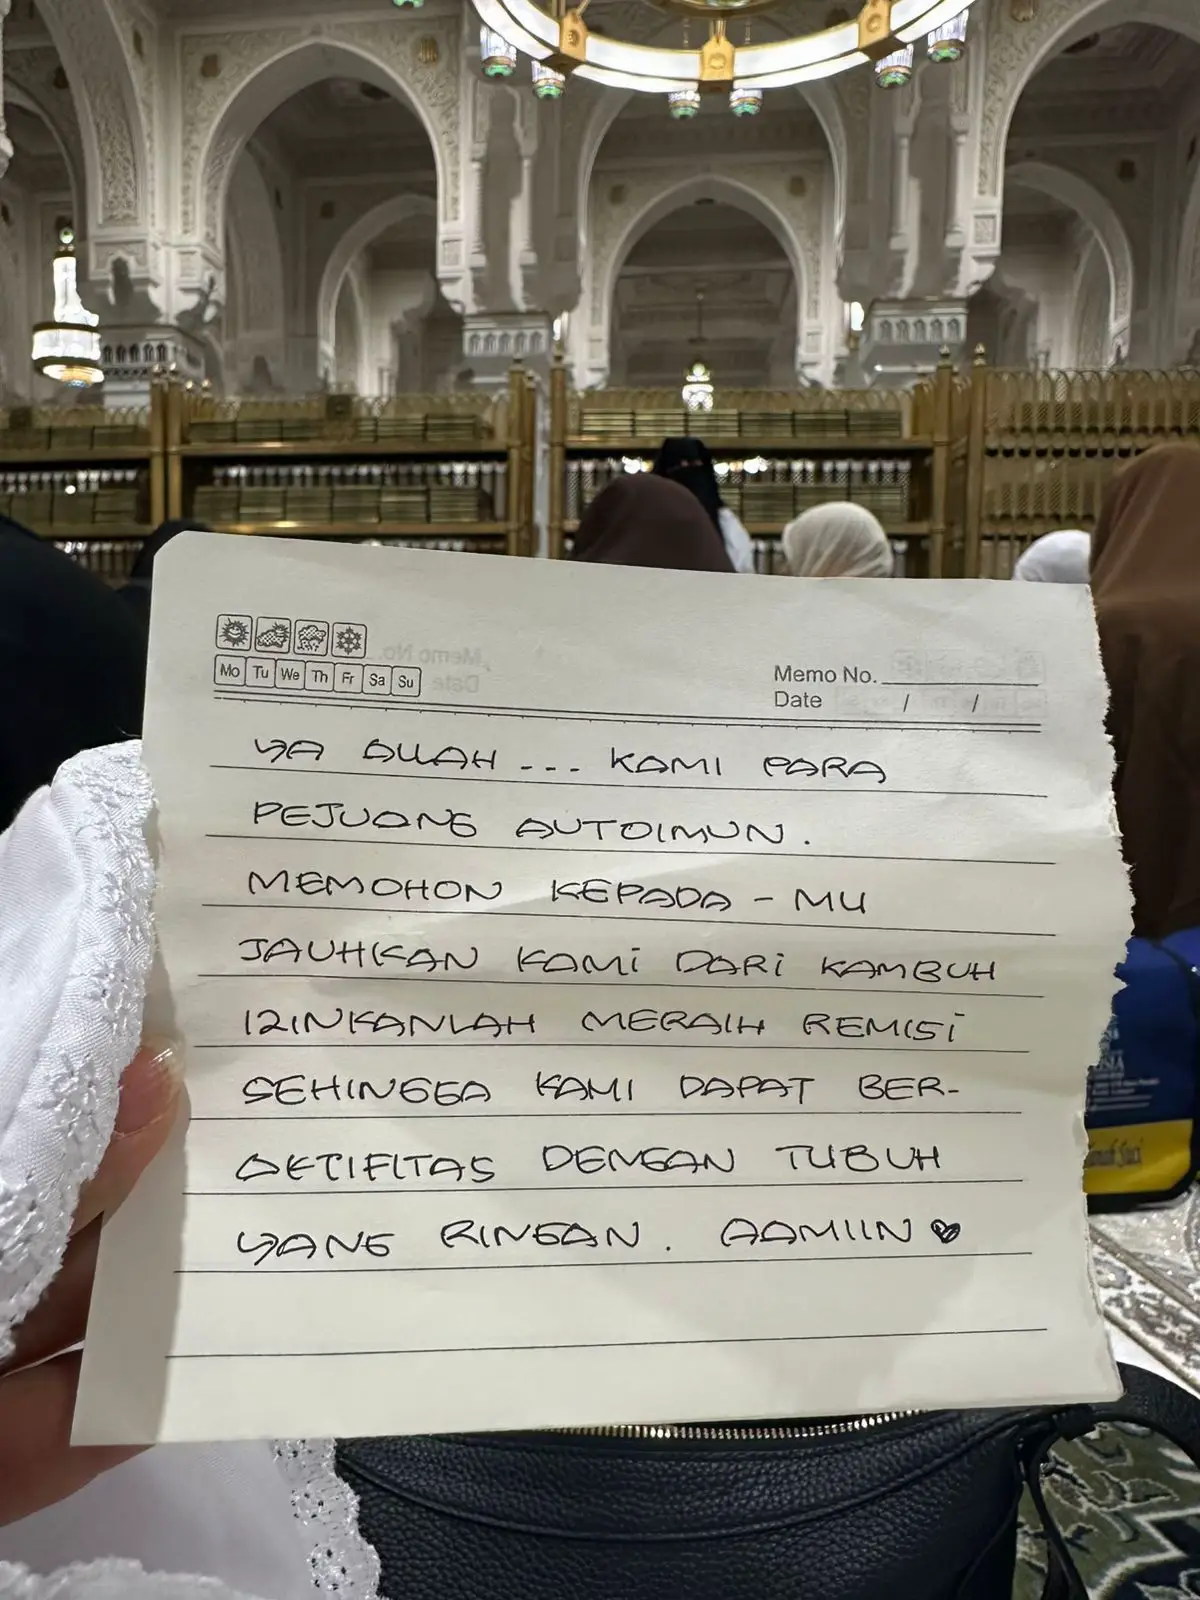 Mo Tu We Th Fr Sa Su
Memo No.
Date / /
YA ALLAH ... KAMI PARA
PEJUANG AUTOIMUN.
MEMOHON KEPADA - MU
JAUHKAN KAMI DARI KAMBUH
IZINKANLAH MERAIH REMISI
SEHINGGA KAMI DAPAT BER-
AKTIFITAS DENGAN TUBUH
YANG RINGAN. AAMIIN ♥